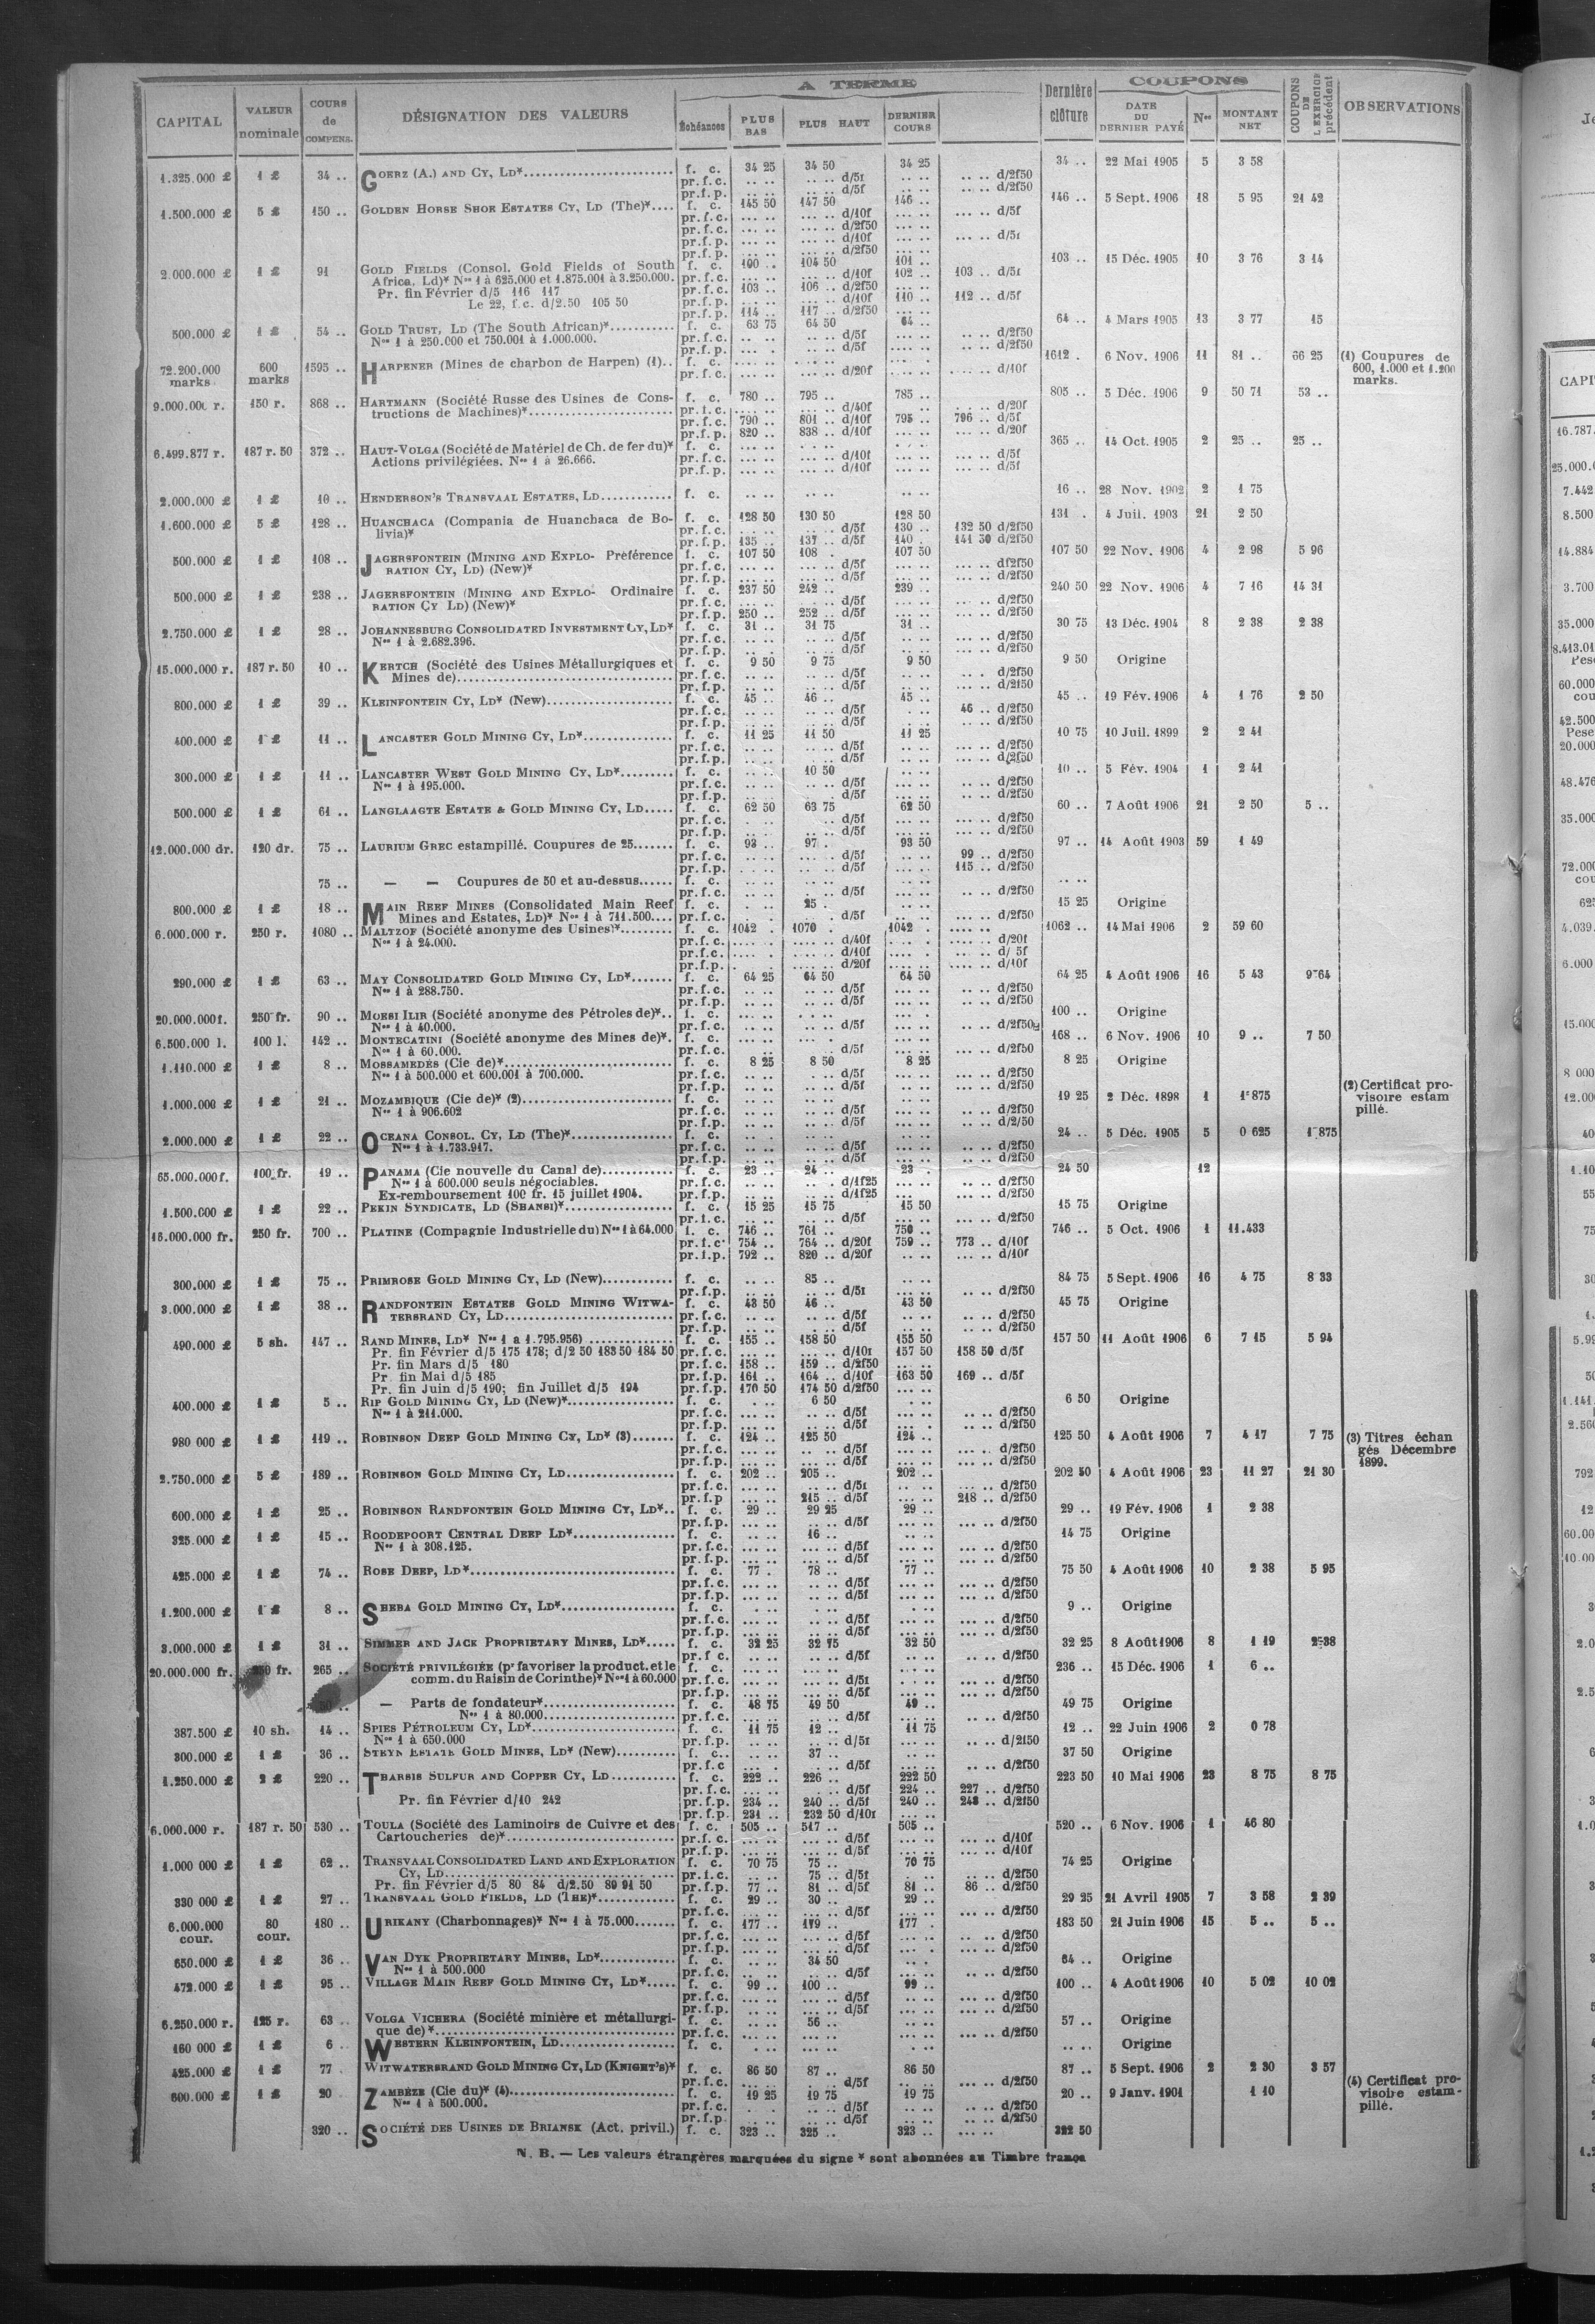 A TERME
COUPONS
CAPITAL VALEUR nominale COURS de COMPENS. DÉSIGNATION DES VALEURS Échéances PLUS BAS PLUS HAUT DERNIER COURS Dernière clôture DATE DU DERNIER PAYÉ Nos MONTANT NET COUPONS DE L'EXERCICE précédent OBSERVATIONS
1.325.000 £ 1 £ 34 .. GOERZ (A.) AND CY, LD* f. c. 34 25 34 50 34 25 34 .. 22 Mai 1905 5 3 58
pr.f.c. d/5f d/2f50
pr.f.p. d/5f d/2f50
1.500.000 £ 5 £ 150 .. GOLDEN HORSE SHOE ESTATES CY, LD (The)* f. c. 145 50 147 50 146 .. 146 .. 5 Sept. 1906 18 5 95 21 42
pr.f.c. d/10f d/5f
pr.f.c. d/2f50
pr.f.p. d/10f d/5f
pr.f.p. d/2f50
2.000.000 £ 1 £ 91 GOLD FIELDS (Consol. Gold Fields of South f. c. 100 .. 104 50 101 .. 103 .. 15 Déc. 1905 10 3 76 3 14
Africa, Ld)* Nos 1 à 625.000 et 1.875.001 à 3.250.000. pr.f.c. d/10f 102 .. 103 .. d/5f
Pr. fin Février d/5 116 117 pr.f.c. 103 .. 106 .. d/2f50
Le 22, f.c. d/2.50 105 50 pr.f.p. d/10f 110 .. 112 .. d/5f
pr.f.p. 114 .. 117 .. d/2f50
500.000 £ 1 £ 54 .. GOLD TRUST, LD (The South African)* f. c. 63 75 64 50 64 .. 64 .. 4 Mars 1905 13 3 77 15
Nos 1 à 250.000 et 750.001 à 1.000.000. pr.f.c. d/5f d/2f50
pr.f.p. d/5f d/2f50
72.200.000 marks 600 marks 1595 .. HARPENER (Mines de charbon de Harpen) (1).. f. c. 1612 . 6 Nov. 1906 11 81 .. 66 25 (1) Coupures de 600, 1.000 et 1.200 marks.
pr.f.c. d/20f d/10f
9.000.000 r. 150 r. 868 .. HARTMANN (Société Russe des Usines de Cons- f. c. 780 .. 795 .. 785 .. 805 .. 5 Déc. 1906 9 50 71 53 ..
tructions de Machines)* pr.f.c. d/40f d/20f
pr.f.c. 790 .. 801 .. d/10f 795 .. 796 .. d/5f
pr.f.p. 820 .. 838 .. d/10f d/20f
6.499.877 r. 187 r. 50 372 .. HAUT-VOLGA (Société de Matériel de Ch. de fer du)* f. c. 365 .. 14 Oct. 1905 2 25 .. 25 ..
Actions privilégiées. Nos 1 à 26.666. pr.f.c. d/10f d/5f
pr.f.p. d/10f d/5f
2.000.000 £ 1 £ 10 .. HENDERSON'S TRANSVAAL ESTATES, LD f. c. 16 .. 28 Nov. 1902 2 1 75
1.600.000 £ 5 £ 128 .. HUANCHACA (Compania de Huanchaca de Bo- f. c. 128 50 130 50 128 50 131 . 4 Juil. 1903 21 2 50
livia)* pr.f.c. d/5f 130 .. 132 50 d/2f50
pr.f.p. 135 .. 137 .. d/5f 140 . 141 50 d/2f50
500.000 £ 1 £ 108 .. JAGERSFONTEIN (MINING AND EXPLO- Préférence f. c. 107 50 108 . 107 50 107 50 22 Nov. 1906 4 2 98 5 96
RATION CY, LD) (New)* pr.f.c. d/5f d/2f50
pr.f.p. d/5f d/2f50
500.000 £ 1 £ 238 .. JAGERSFONTEIN (MINING AND EXPLO- Ordinaire f. c. 237 50 242 .. 239 .. 240 50 22 Nov. 1906 4 7 16 14 31
RATION CY LD) (New)* pr.f.c. d/5f d/2f50
pr.f.p. 250 .. 252 .. d/5f d/2f50
2.750.000 £ 1 £ 28 .. JOHANNESBURG CONSOLIDATED INVESTMENT CY, LD* f. c. 31 .. 31 75 31 .. 30 75 13 Déc. 1904 8 2 38 2 38
Nos 1 à 2.682.396. pr.f.c. d/5f d/2f50
pr.f.p. d/5f d/2f50
15.000.000 r. 187 r. 50 10 .. KERTCH (Société des Usines Métallurgiques et f. c. 9 50 9 75 9 50 9 50 Origine
Mines de) pr.f.c. d/5f d/2f50
pr.f.p. d/5f d/2f50
800.000 £ 1 £ 39 .. KLEINFONTEIN CY, LD* (New) f. c. 45 .. 46 .. 45 .. 45 .. 19 Fév. 1906 4 1 76 2 50
pr.f.c. d/5f 46 .. d/2f50
pr.f.p. d/5f d/2f50
400.000 £ 1 £ 11 .. LANCASTER GOLD MINING CY, LD* f. c. 11 25 11 50 11 25 10 75 10 Juil. 1899 2 2 41
pr.f.c. d/5f d/2f50
pr.f.p. d/5f d/2f50
300.000 £ 1 £ 11 .. LANCASTER WEST GOLD MINING CY, LD* f. c. 10 50 10 .. 5 Fév. 1904 1 2 41
Nos 1 à 195.000. pr.f.c. d/5f d/2f50
pr.f.p. d/5f d/2f50
500.000 £ 1 £ 61 .. LANGLAAGTE ESTATE & GOLD MINING CY, LD f. c. 62 50 63 75 62 50 60 .. 7 Août 1906 21 2 50 5 ..
pr.f.c. d/5f d/2f50
pr.f.p. d/5f d/2f50
12.000.000 dr. 120 dr. 75 .. LAURIUM GREC estampillé. Coupures de 25 f. c. 93 .. 97 . 93 50 97 .. 14 Août 1903 59 1 49
pr.f.c. d/5f 99 .. d/2f50
pr.f.p. d/5f 115 .. d/2f50
75 .. — — Coupures de 50 et au-dessus f. c.
pr.f.c. d/5f d/2f50
800.000 £ 1 £ 18 .. MAIN REEF MINES (Consolidated Main Reef f. c. 25 . 15 25 Origine
Mines and Estates, LD)* Nos 1 à 711.500 pr.f.c. d/5f d/2f50
6.000.000 r. 250 r. 1080 .. MALTZOF (Société anonyme des Usines)* f. c. 1042 . 1070 . 1042 . 1062 .. 14 Mai 1906 2 59 60
Nos 1 à 24.000. pr.f.c. d/40f d/20f
pr.f.c. d/10f d/ 5f
pr.f.p. d/20f d/10f
290.000 £ 1 £ 63 .. MAY CONSOLIDATED GOLD MINING CY, LD* f. c. 64 25 64 50 64 50 64 25 4 Août 1906 16 5 43 9 64
Nos 1 à 288.750. pr.f.c. d/5f d/2f50
pr.f.p. d/5f d/2f50
20.000.000 f. 250 fr. 90 .. MOESI ILIR (Société anonyme des Pétroles de)* f. c. 100 .. Origine
Nos 1 à 40.000. pr.f.c. d/5f d/2f50
6.500.000 l. 100 l. 142 .. MONTECATINI (Société anonyme des Mines de)* f. c. 168 .. 6 Nov. 1906 10 9 .. 7 50
Nos 1 à 60.000. pr.f.c. d/5f d/2f50
1.110.000 £ 1 £ 8 .. MOSSAMEDÈS (Cie de)* f. c. 8 25 8 50 8 25 8 25 Origine
Nos 1 à 500.000 et 600.001 à 700.000. pr.f.c. d/5f d/2f50
pr.f.p. d/5f d/2f50
1.000.000 £ 1 £ 21 .. MOZAMBIQUE (Cie de)* (2) f. c. 19 25 2 Déc. 1898 1 1 875 (2) Certificat pro- visoire estam pillé.
Nos 1 à 906.602 pr.f.c. d/5f d/2f50
pr.f.p. d/5f d/2/50
2.000.000 £ 1 £ 22 .. OCEANA CONSOL. CY, LD (The)* f. c. 24 .. 5 Déc. 1905 5 0 625 1 875
Nos 1 à 1.733.917. pr.f.c. d/5f d/2f50
pr.f.p. d/5f d/2f50
65.000.000 f. 100 fr. 19 .. PANAMA (Cie nouvelle du Canal de) f. c. 23 .. 24 .. 23 . 24 50 12
Nos 1 à 600.000 seuls négociables. pr.f.c. d/1f25 d/2f50
Ex-remboursement 100 fr. 15 juillet 1904. pr.f.p. d/1f25 d/2f50
1.500.000 £ 1 £ 22 .. PEKIN SYNDICATE, LD (SHANSI)* f. c. 15 25 15 75 15 50 15 75 Origine
pr.f.c. d/5f d/2f50
16.000.000 fr. 250 fr. 700 .. PLATINE (Compagnie Industrielle du) Nos 1 à 64.000 f. c. 746 .. 761 .. 750 .. 746 .. 5 Oct. 1906 1 11.433
pr.f.c. 754 .. 764 .. d/20f 759 .. 773 .. d/10f
pr.f.p. 792 .. 820 .. d/20f d/10f
300.000 £ 1 £ 75 .. PRIMROSE GOLD MINING CY, LD (New) f. c. 85 .. 84 75 5 Sept. 1906 16 4 75 8 33
pr.f.p. d/5f d/2f50
3.000.000 £ 1 £ 38 .. RANDFONTEIN ESTATES GOLD MINING WITWA- f. c. 43 50 46 .. 43 50 45 75 Origine
TERSRAND CY, LD pr.f.c. d/5f d/2f50
pr.f.p. d/5f d/2f50
490.000 £ 5 sh. 147 .. RAND MINES, LD* Nos 1 a 1.795.956) f. c. 155 .. 158 50 155 50 157 50 11 Août 1906 6 7 15 5 94
Pr. fin Février d/5 175 178; d/2 50 183 50 184 50 pr.f.c. d/10f 157 50 158 50 d/5f
Pr. fin Mars d/5 180 pr.f.c. 158 .. 159 .. d/2f50
Pr. fin Mai d/5 185 pr.f.p. 161 .. 164 .. d/10f 163 50 169 .. d/5f
Pr. fin Juin d/5 190; fin Juillet d/5 194 pr.f.p. 170 50 174 50 d/2f50
400.000 £ 1 £ 5 .. RIP GOLD MINING CY, LD (New)* f. c. 6 50 6 50 Origine
Nos 1 à 211.000. pr.f.c. d/5f d/2f50
pr.f.p. d/5f d/2f50
980 000 £ 1 £ 119 .. ROBINSON DEEP GOLD MINING CY, LD* (3) f. c. 124 .. 125 50 124 .. 125 50 4 Août 1906 7 4 17 7 75 (3) Titres échan gés Décembre 1899.
pr.f.c. d/5f d/2f50
pr.f.p. d/5f d/2f50
2.750.000 £ 5 £ 189 .. ROBINSON GOLD MINING CY, LD f. c. 202 .. 205 .. 202 .. 202 50 4 Août 1906 23 11 27 21 30
pr.f.c. d/5f d/2f50
pr.f.p 215 .. d/5f 218 .. d/2f50
600.000 £ 1 £ 25 .. ROBINSON RANDFONTEIN GOLD MINING CY, LD* f. c. 29 .. 29 25 29 .. 29 .. 19 Fév. 1906 1 2 38
pr.f.p. d/5f d/2f50
325.000 £ 1 £ 15 .. ROODEPOORT CENTRAL DEEP LD* f. c. 16 .. 14 75 Origine
Nos 1 à 308.125. pr.f.c. d/5f d/2f50
pr.f.p. d/5f d/2f50
425.000 £ 1 £ 74 .. ROSE DEEP, LD* f. c. 77 . 78 .. 77 .. 75 50 4 Août 1906 10 2 38 5 95
pr.f.c. d/5f d/2f50
pr.f.p. d/5f d/2f50
1.200.000 £ 1 £ 8 .. SHEBA GOLD MINING CY, LD* f. c. 9 .. Origine
pr.f.c. d/5f d/2f50
pr.f.p. d/5f d/2f50
3.000.000 £ 1 £ 31 .. SIMMER AND JACK PROPRIETARY MINES, LD* f. c. 32 25 32 75 32 50 32 25 8 Août 1906 8 1 19 2 38
pr.f.c. d/5f d/2f50
20.000.000 fr. 250 fr. 265 .. SOCIÉTÉ PRIVILÉGIÉE (pr favoriser la product. et le f. c. 236 .. 15 Déc. 1906 1 6 ..
comm. du Raisin de Corinthe)* Nos 1 à 60.000 pr.f.c. d/5f d/2f50
pr.f.p. d/5f d/2f50
— Parts de fondateur* f. c. 48 75 49 50 49 .. 49 75 Origine
Nos 1 à 80.000 pr.f.c. d/5f d/2f50
387.500 £ 10 sh. 14 .. SPIES PÉTROLEUM CY, LD* f. c. 11 75 12 .. 11 75 12 .. 22 Juin 1906 2 0 78
Nos 1 à 650.000 pr.f.p. d/5f d/2f50
300.000 £ 1 £ 36 .. STEYN ESTATE GOLD MINES, LD* (New) f. c. 37 .. 37 50 Origine
pr.f.c d/5f d/2f50
1.250.000 £ 2 £ 220 .. THARSIS SULFUR AND COPPER CY, LD f. c. 222 .. 226 .. 222 50 223 50 10 Mai 1906 23 8 75 8 75
pr.f.c. d/5f 224 .. 227 .. d/2f50
Pr. fin Février d/10 242 pr.f.p. 234 .. 240 .. d/5f 240 .. 243 .. d/2f50
pr.f.p. 231 .. 232 50 d/10f
6.000.000 r. 187 r. 50 530 .. TOULA (Société des Laminoirs de Cuivre et des f. c. 505 .. 517 .. 505 .. 520 .. 6 Nov. 1906 1 46 80
Cartoucheries de)* pr.f.c. d/5f d/10f
pr.f.p. d/5f d/10f
1.000 000 £ 1 £ 62 .. TRANSVAAL CONSOLIDATED LAND AND EXPLORATION f. c. 70 75 75 .. 70 75 74 25 Origine
CY, LD pr.f.c. 75 .. d/5f d/2f50
Pr. fin Février d/5 80 84 d/2.50 89 91 50 pr.f.p. 77 .. 81 .. d/5f 81 .. 86 .. d/2f50
330 000 £ 1 £ 27 .. TRANSVAAL GOLD FIELDS, LD (THE)* f. c. 29 .. 30 .. 29 .. 29 25 21 Avril 1905 7 3 58 2 39
pr.f.c. d/5f d/2f50
6.000.000 cour. 80 cour. 180 .. URIKANY (Charbonnages)* Nos 1 à 75.000 f. c. 177 .. 179 .. 177 . 183 50 21 Juin 1906 15 5 .. 5 ..
pr.f.c. d/5f d/2f50
pr.f.p. d/5f d/2f50
650.000 £ 1 £ 36 .. VAN DYK PROPRIETARY MINES, LD* f. c. 34 50 64 .. Origine
Nos 1 à 500.000 pr.f.c. d/5f d/2f50
472.000 £ 1 £ 95 .. VILLAGE MAIN REEF GOLD MINING CY, LD* f. c. 99 .. 100 .. 99 .. 100 .. 4 Août 1906 10 5 02 10 02
pr.f.c. d/5f d/2f50
pr.f.p. d/5f d/2f50
6.250.000 r. 125 r. 63 .. VOLGA VICHERA (Société minière et métallurgi- f. c. 56 .. 57 .. Origine
que de)* pr.f.c. d/2f50
160 000 £ 1 £ 6 .. WESTERN KLEINFONTEIN, LD f. c. Origine
425.000 £ 1 £ 77 WITWATERSRAND GOLD MINING CY, LD (KNIGHT'S)* f. c. 86 50 87 .. 86 50 87 .. 5 Sept. 1906 2 2 30 3 57
pr.f.c. d/5f d/2f50
600.000 £ 1 £ 20 ZAMBÈZE (Cie du)* (4) f. c. 19 25 19 75 19 75 20 .. 9 Janv. 1901 1 10 (4) Certificat pro- visoire estam- pillé.
Nos 1 à 500.000. pr.f.c. d/5f d/2f50
pr.f.p d/5f d/2f50
320 .. SOCIÉTÉ DES USINES DE BRIANSK (Act. privil.) f. c. 323 .. 325 .. 323 .. 322 50
N. B. — Les valeurs étrangères marquées du signe * sont abonnées au Timbre frança